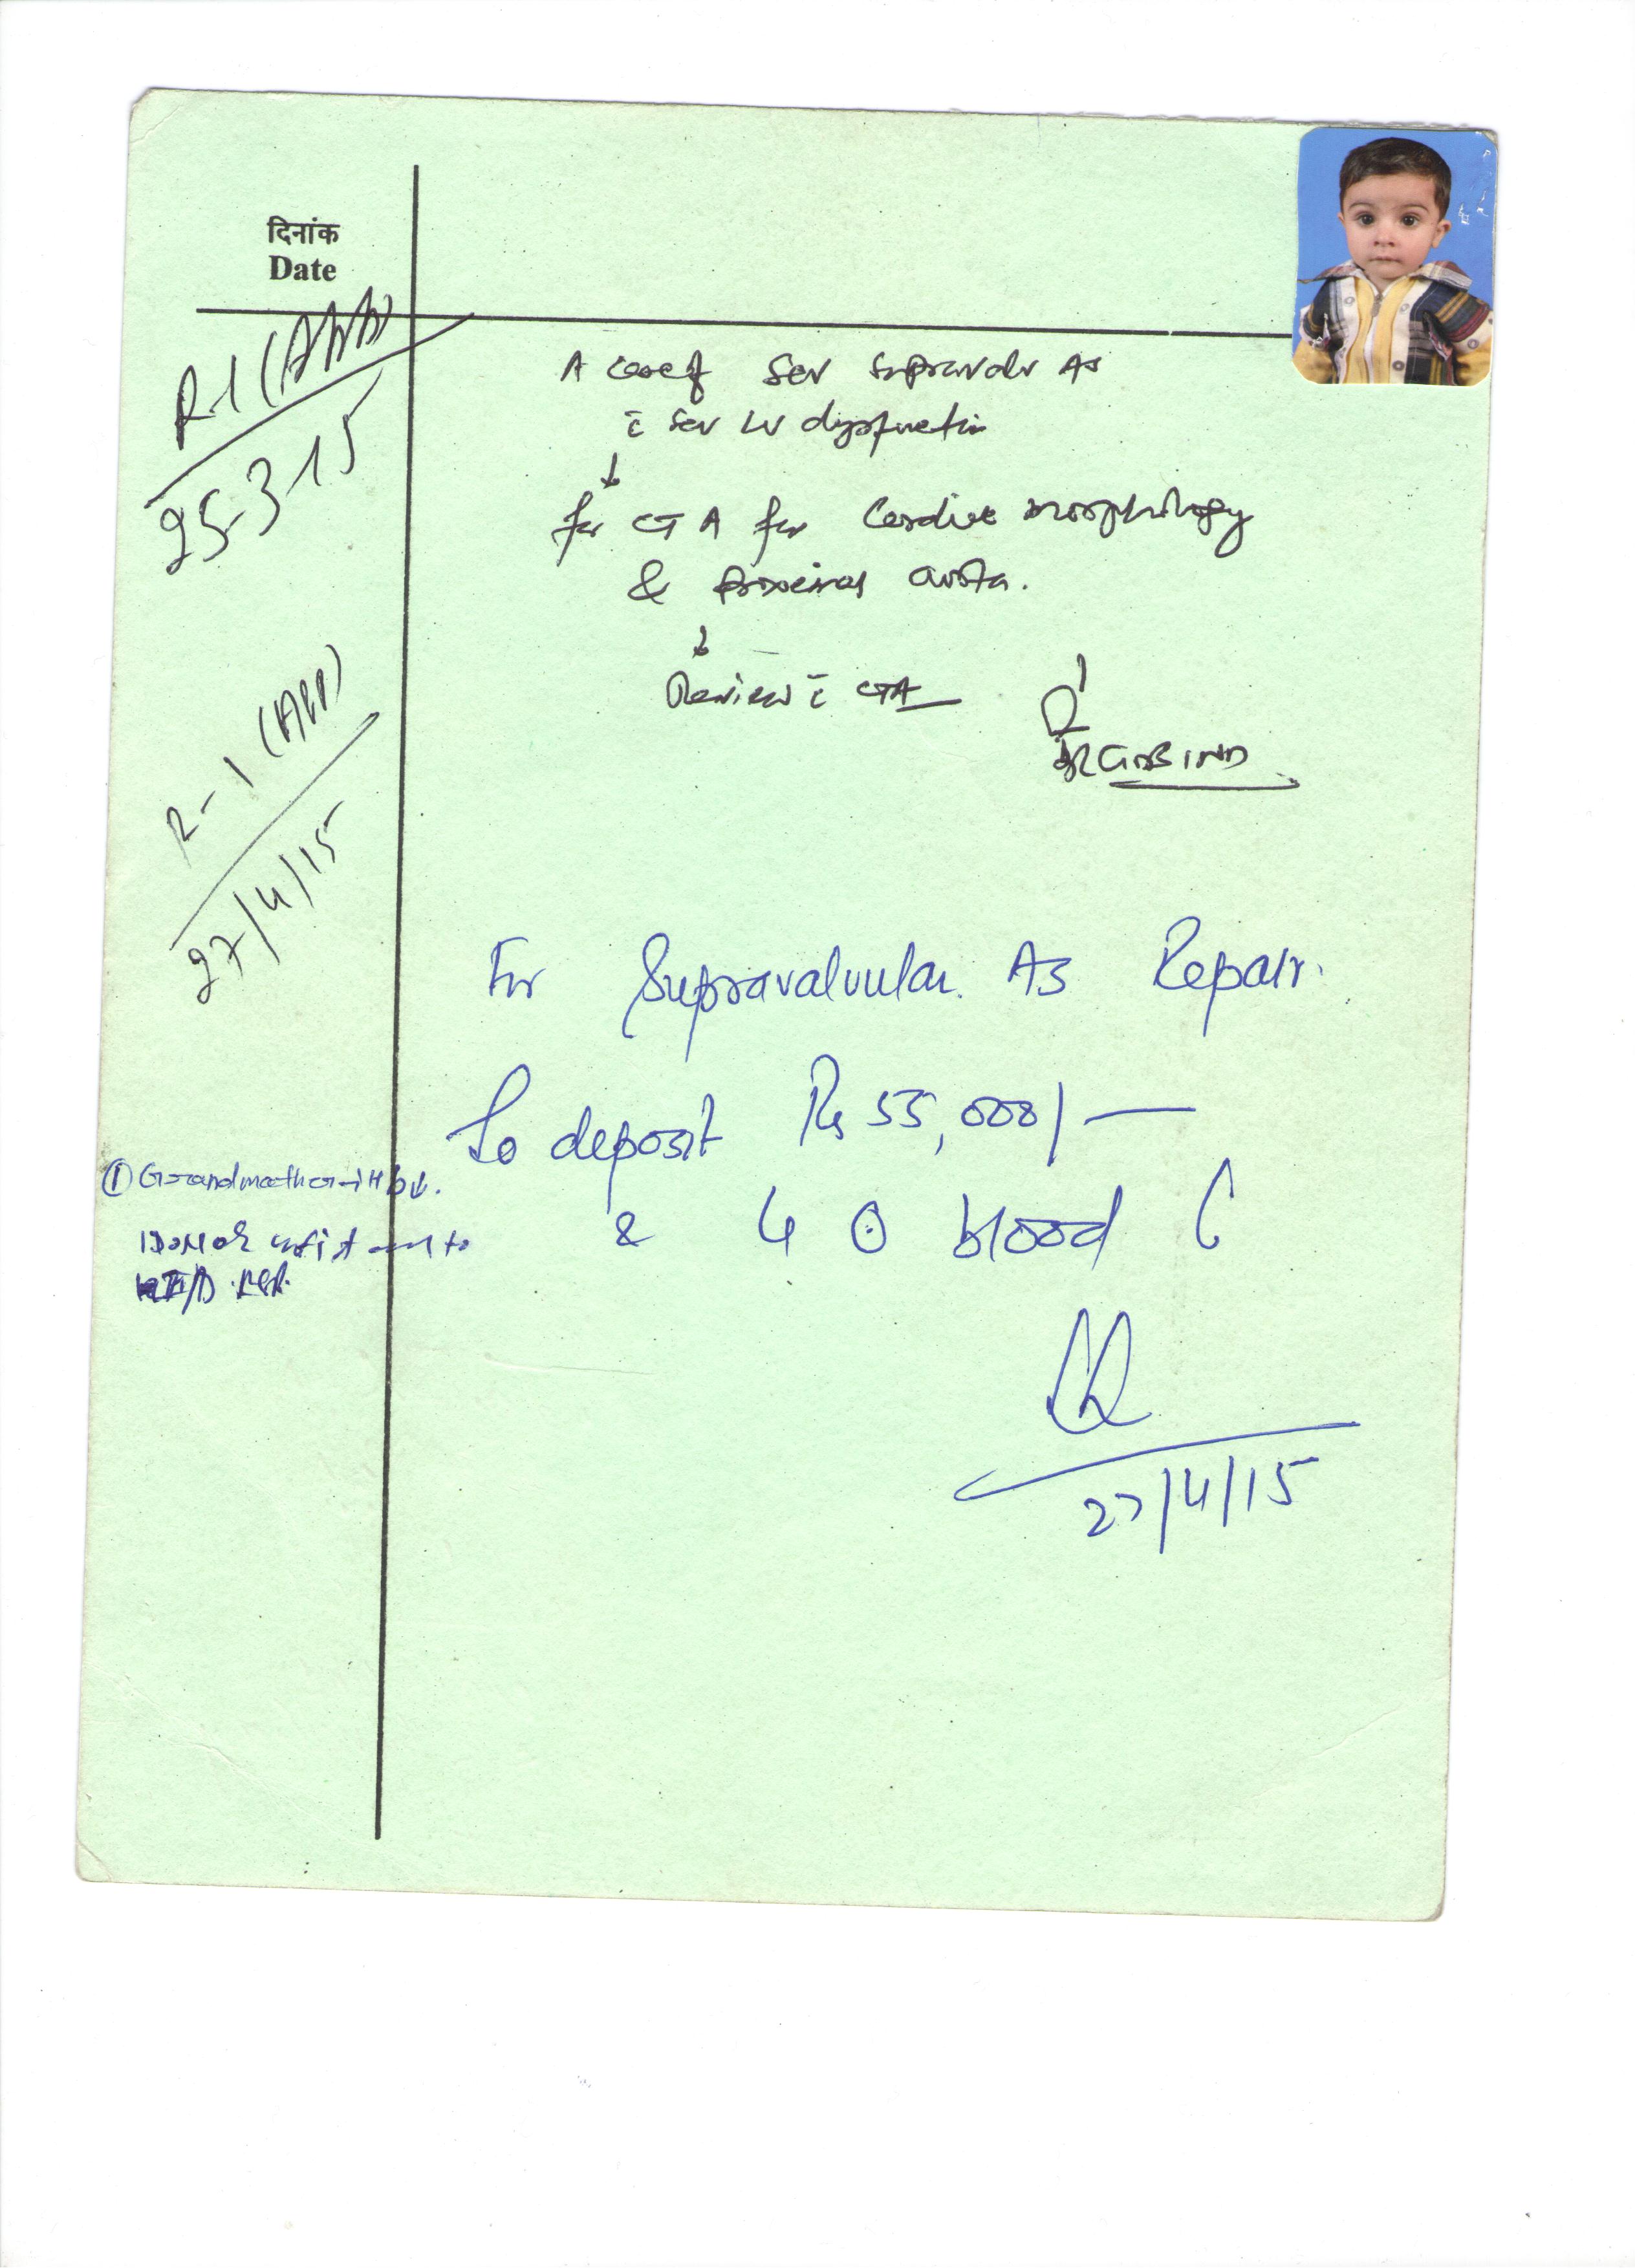 दिनांक
Date
R-1
25-3-15
A case of Sev Supravalv AS
c̄ Sev LV dysfunctin
↓
for CTA for Cardiac morphology
& proximal aorta.
↓
Review c̄ CTA
DR GOBIND
R-1
27/4/15
For Supravalvular AS Repair.
To deposit Rs 55,000/-
& 4 blood
① Grandmother
Donor
27/4/15